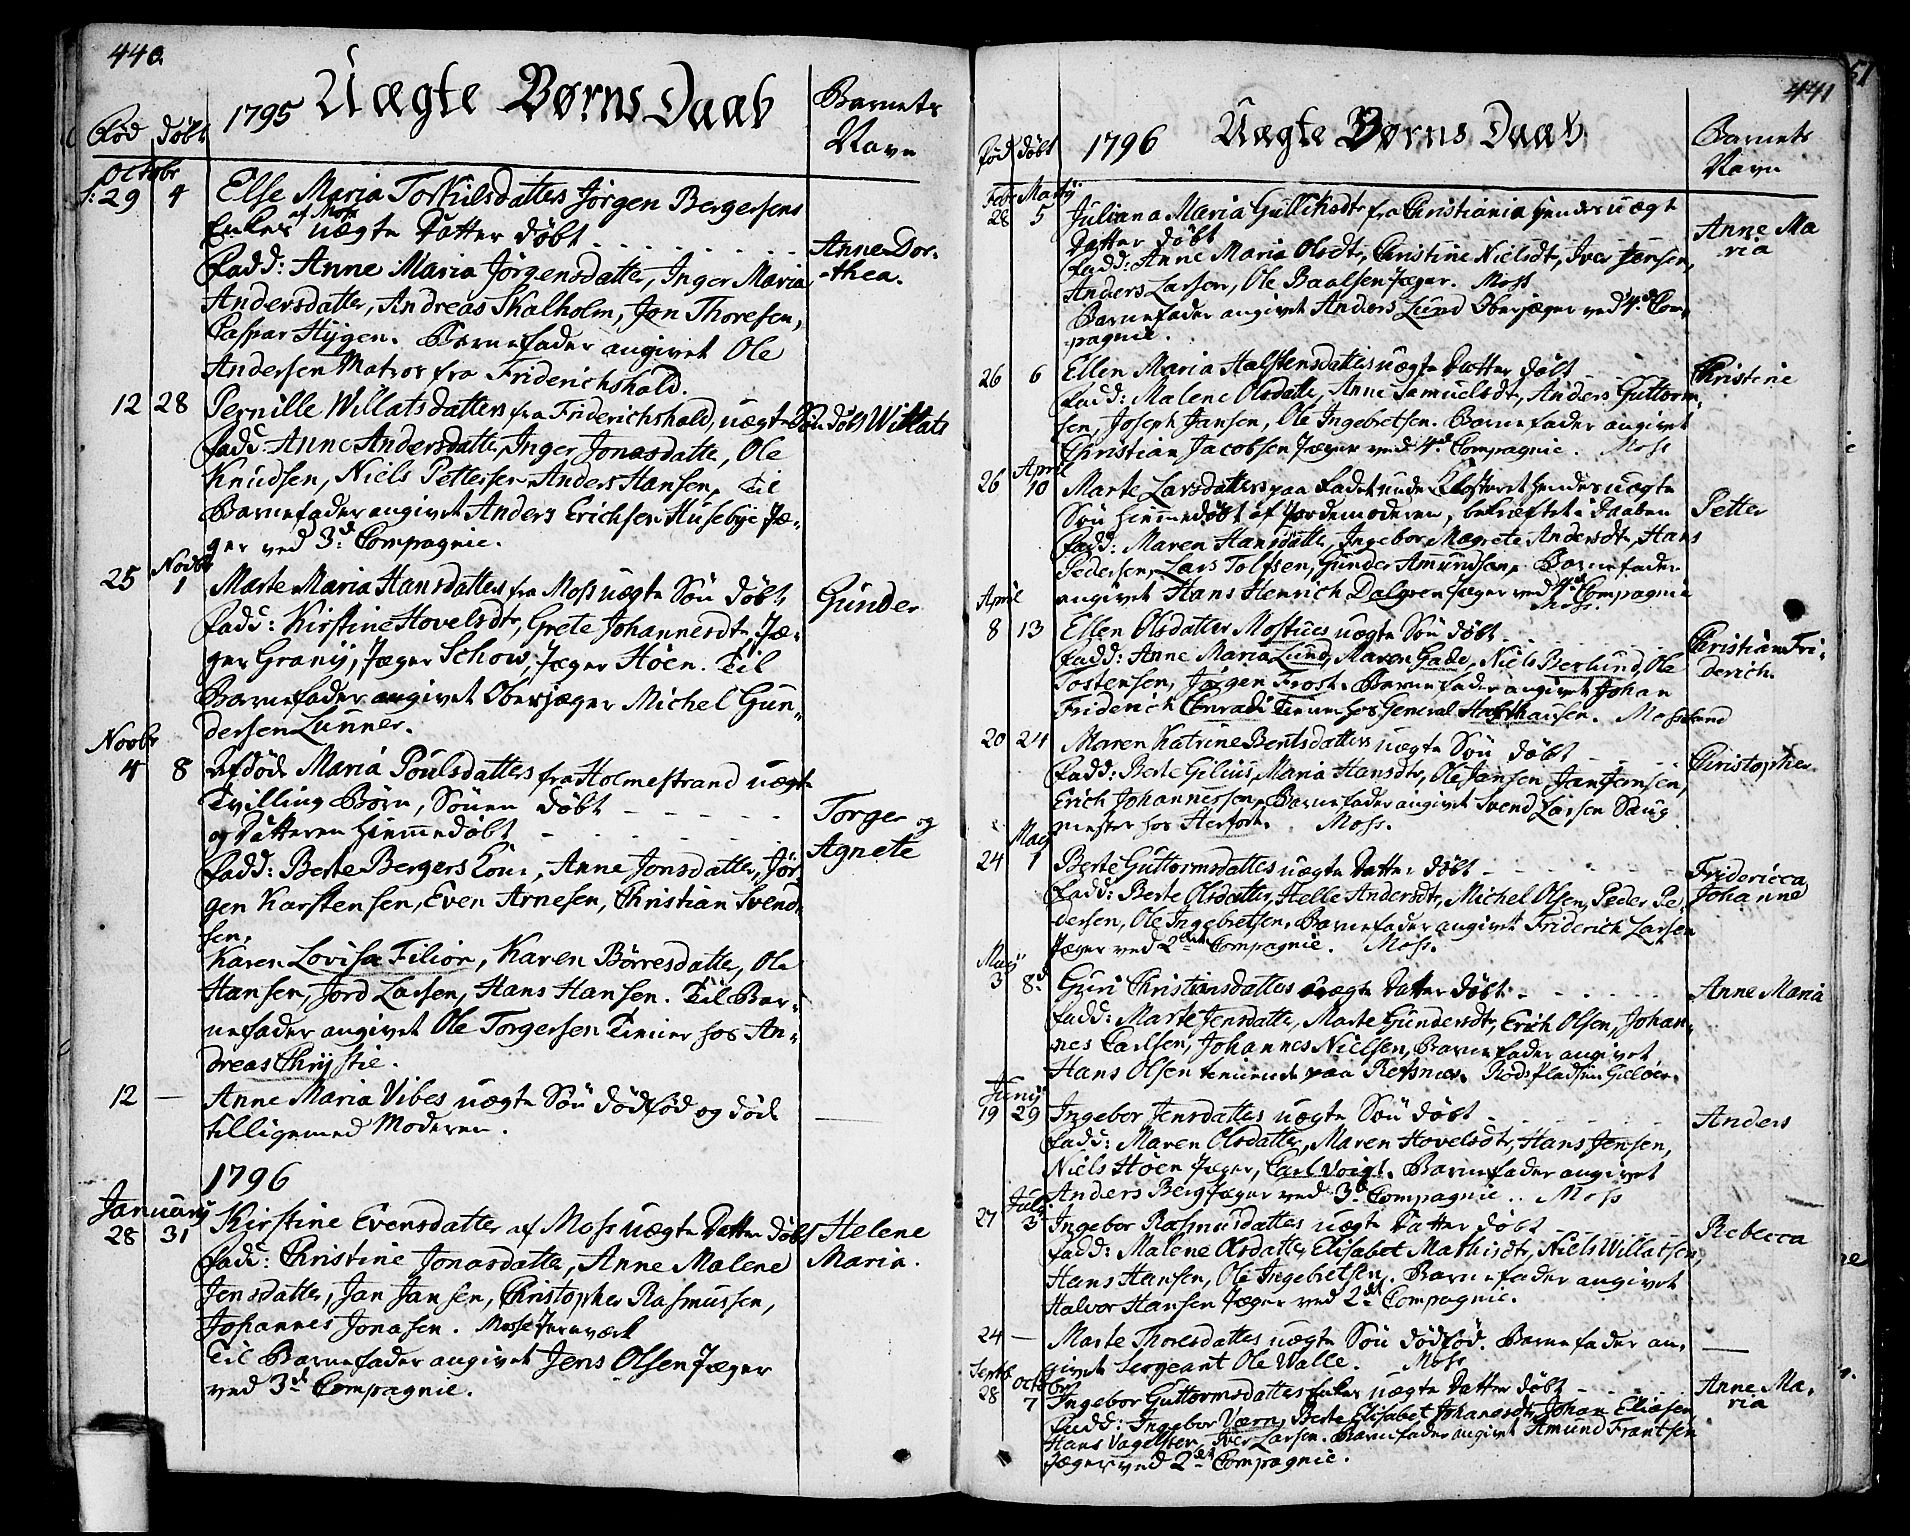 440.
Uægte Børns Daab
1795
Fød døbt
Barnets
Navn
Octobr
f: 29 4 Else Maria Torkilsdatters Jørgen Bergersens
Enkes af Moss uægte Datter døbt
Anne Dor-
thea.
Fadd: Anne Maria Jørgensdatter, Inger Maria
Andersdatter, Andreas Skalholm, Jon Thoresen,
Caspar Hÿgen. Barnefader angivet Ole
Andersen Matros fra Friderichshald.
12 28 Pernille Willatsdatters fra Friderichshald, uægte Søn døbt Willats
Fadd: Anne Andersdatter, Inger Jonasdatter, Ole
Knudsen, Niels Pettersen Anders Hansen, Til
Barnefader angivet Anders Erichsen Husebye Jæ-
ger ved 3d Compagnie.
Novbr
25 1 Marte Maria Hansdatters fra Moss uægte Søn døbt
Gunder
Fadd: Kirstine Hovelsdtr, Grete Johannesdtr, Jæ-
ger Granÿ, Jæger Schow, Jæger Höen. Til
Barnefader angivet Oberjæger Michel Gun-
dersen Lunner.
Novbr
4 8 Afdöde Maria Poulsdatters fra Holmestrand uægte
Tvilling Børn, Sönen døbt
Torger og
og Datteren hiemmedøbt
Agnete
Fadd: Berte Bergers Kone, Anne Jonsdatter, Jör-
gen Karstensen, Even Arnesen, Christian Svend-
sen.
Karen Lovisa Filion, Karen Börresdatter, Ole
Hansen, Jord Larsen, Hans Hansen. Til Bar-
nefader angivet Ole Torgersen Tiener hos An-
dreas Chrÿstie.
12 — Anne Maria Vibes uægte Søn dödfød og död
tilligemed Moderen.
1796
Januarÿ
28 31 Kirstine Evensdatter af Moss uægte Datter døbt
Helene
Maria.
Fadd: Christine Jonasdatter, Anne Malene
Jensdatter, Jan Jansen, Christopher Rasmussen,
Johannes Jonasen. Mosse Jernværk
Til Barnefader angivet Jens Olsen Jæger
ved 3d Compagnie.
441
51
Uægte Børns Daab
1796
Fød døbt
Barnets
Navn
Febr Martÿ
28 5 Juliana Maria Gullichsdtr fra Christiania hendes uægte
Datter døbt
Anne Ma
ria
Fadd: Anne Maria Olsdtr, Christine Nielsdtr, Iver Jensen,
Anders Larsen, Ole Baalsen Jæger. Moss
Barnefader angivet Anders Lund Oberjæger ved 4d Com-
pagnie.
26 6 Ellen Maria Halstensdatters uægte Datter døbt
Christine
Fadd: Malene Olsdatter, Anne Samuelsdtr, Anders Guttorm-
sen, Joseph Jansen, Ole Ingebretsen. Barnefader angivet
Christian Jacobsen Jæger ved 4d Compagnie. Moss
April
26 10 Marte Larsdatters paa Ladet under Klosteret hendes uægte
Petter
Søn hiemmedøbt af Jordemoderen, bekræftet i Daaben
Fadd: Maren Hansdatter, Ingebor Magrete Andersdtr, Hans
Pedersen, Lars Tolfsen, Gunder Amundsen, Barnefader
angivet Hans Henrich Dalgren Jæger ved 4d Compagnie
Moss.
April
8 13 Ellen Olsdatter Mostues uægte Søn døbt
Christian Fri-
derich.
Fadd: Anne Maria Lund, Maren Gade, Niels Berlund, Ole
Tostensen, Jörgen Frost. Barnefader angivet Johan
Friderich Conradi Tiener hos General Haxthausen. Moss
20 24 Maren Katrine Bentsdatters uægte Søn døbt
Christopher
Fadd: Berte Gilius, Maria Hansdtr, Ole Jansen Jan Jensen,
Erich Johannessen, Barnefader angivet Svend Larsen Saug
mester hos Herfort. Moss.
Maÿ
24 1 Berte Guttormsdatters uægte Datter døbt
Fridericca
Johanne
Fadd: Berte Olsdatter, Helle Andersdtr, Michel Olsen, Peder Pe-
dersen, Ole Ingebretsen, Barnefader angivet Friderich Larsen
Jæger ved 2det Compagnie. Moss.
Maÿ
3 8d Guri Christensdatters uægte Datter døbt
Anne Maria
Fadd: Marte Jensdatter, Marte Gundersdtr, Erich Olsen, Johan-
nes Carlsen, Johannes Nielsen, Barnefader angivet
Hans Olsen tienende paa Refsnæs.
Junÿ
19 29 Ingebor Jensdatters uægte Søn døbt
Anders
Fadd: Maren Olsdatter, Maren Hovelsdtr, Hans Jensen,
Niels Höen Jæger, Carl Voigt. Barnefader angivet
Anders Berg Jæger ved 3d Compagnie. Moss
Julÿ
27 3 Ingebor Rasmusdatters uægte Datter døbt
Rebecca
Fadd: Malene Olsdatter, Elisabet Mathisdtr, Niels Willatsen,
Hans Hansen, Ole Ingebretsen. Barnefader angivet
Halvor Hansen Jæger ved 2d Compagnie.
24 — Marte Thoresdatters uægte Søn dödfød. Barnefader an-
givet Sergeant Ole Walle. Moss
Septbr Octobr
28 7 Ingebor Guttormsdatters uægte Datter døbt
Anne Ma-
ria
Fadd: Ingebor Værn, Berte Elisabet Johanesdtr, Johan Eliasen
Hans Vagelsten, Iver Larsen. Barnefader angivet Amund Frantsen
Jæger ved 2det Compagnie.